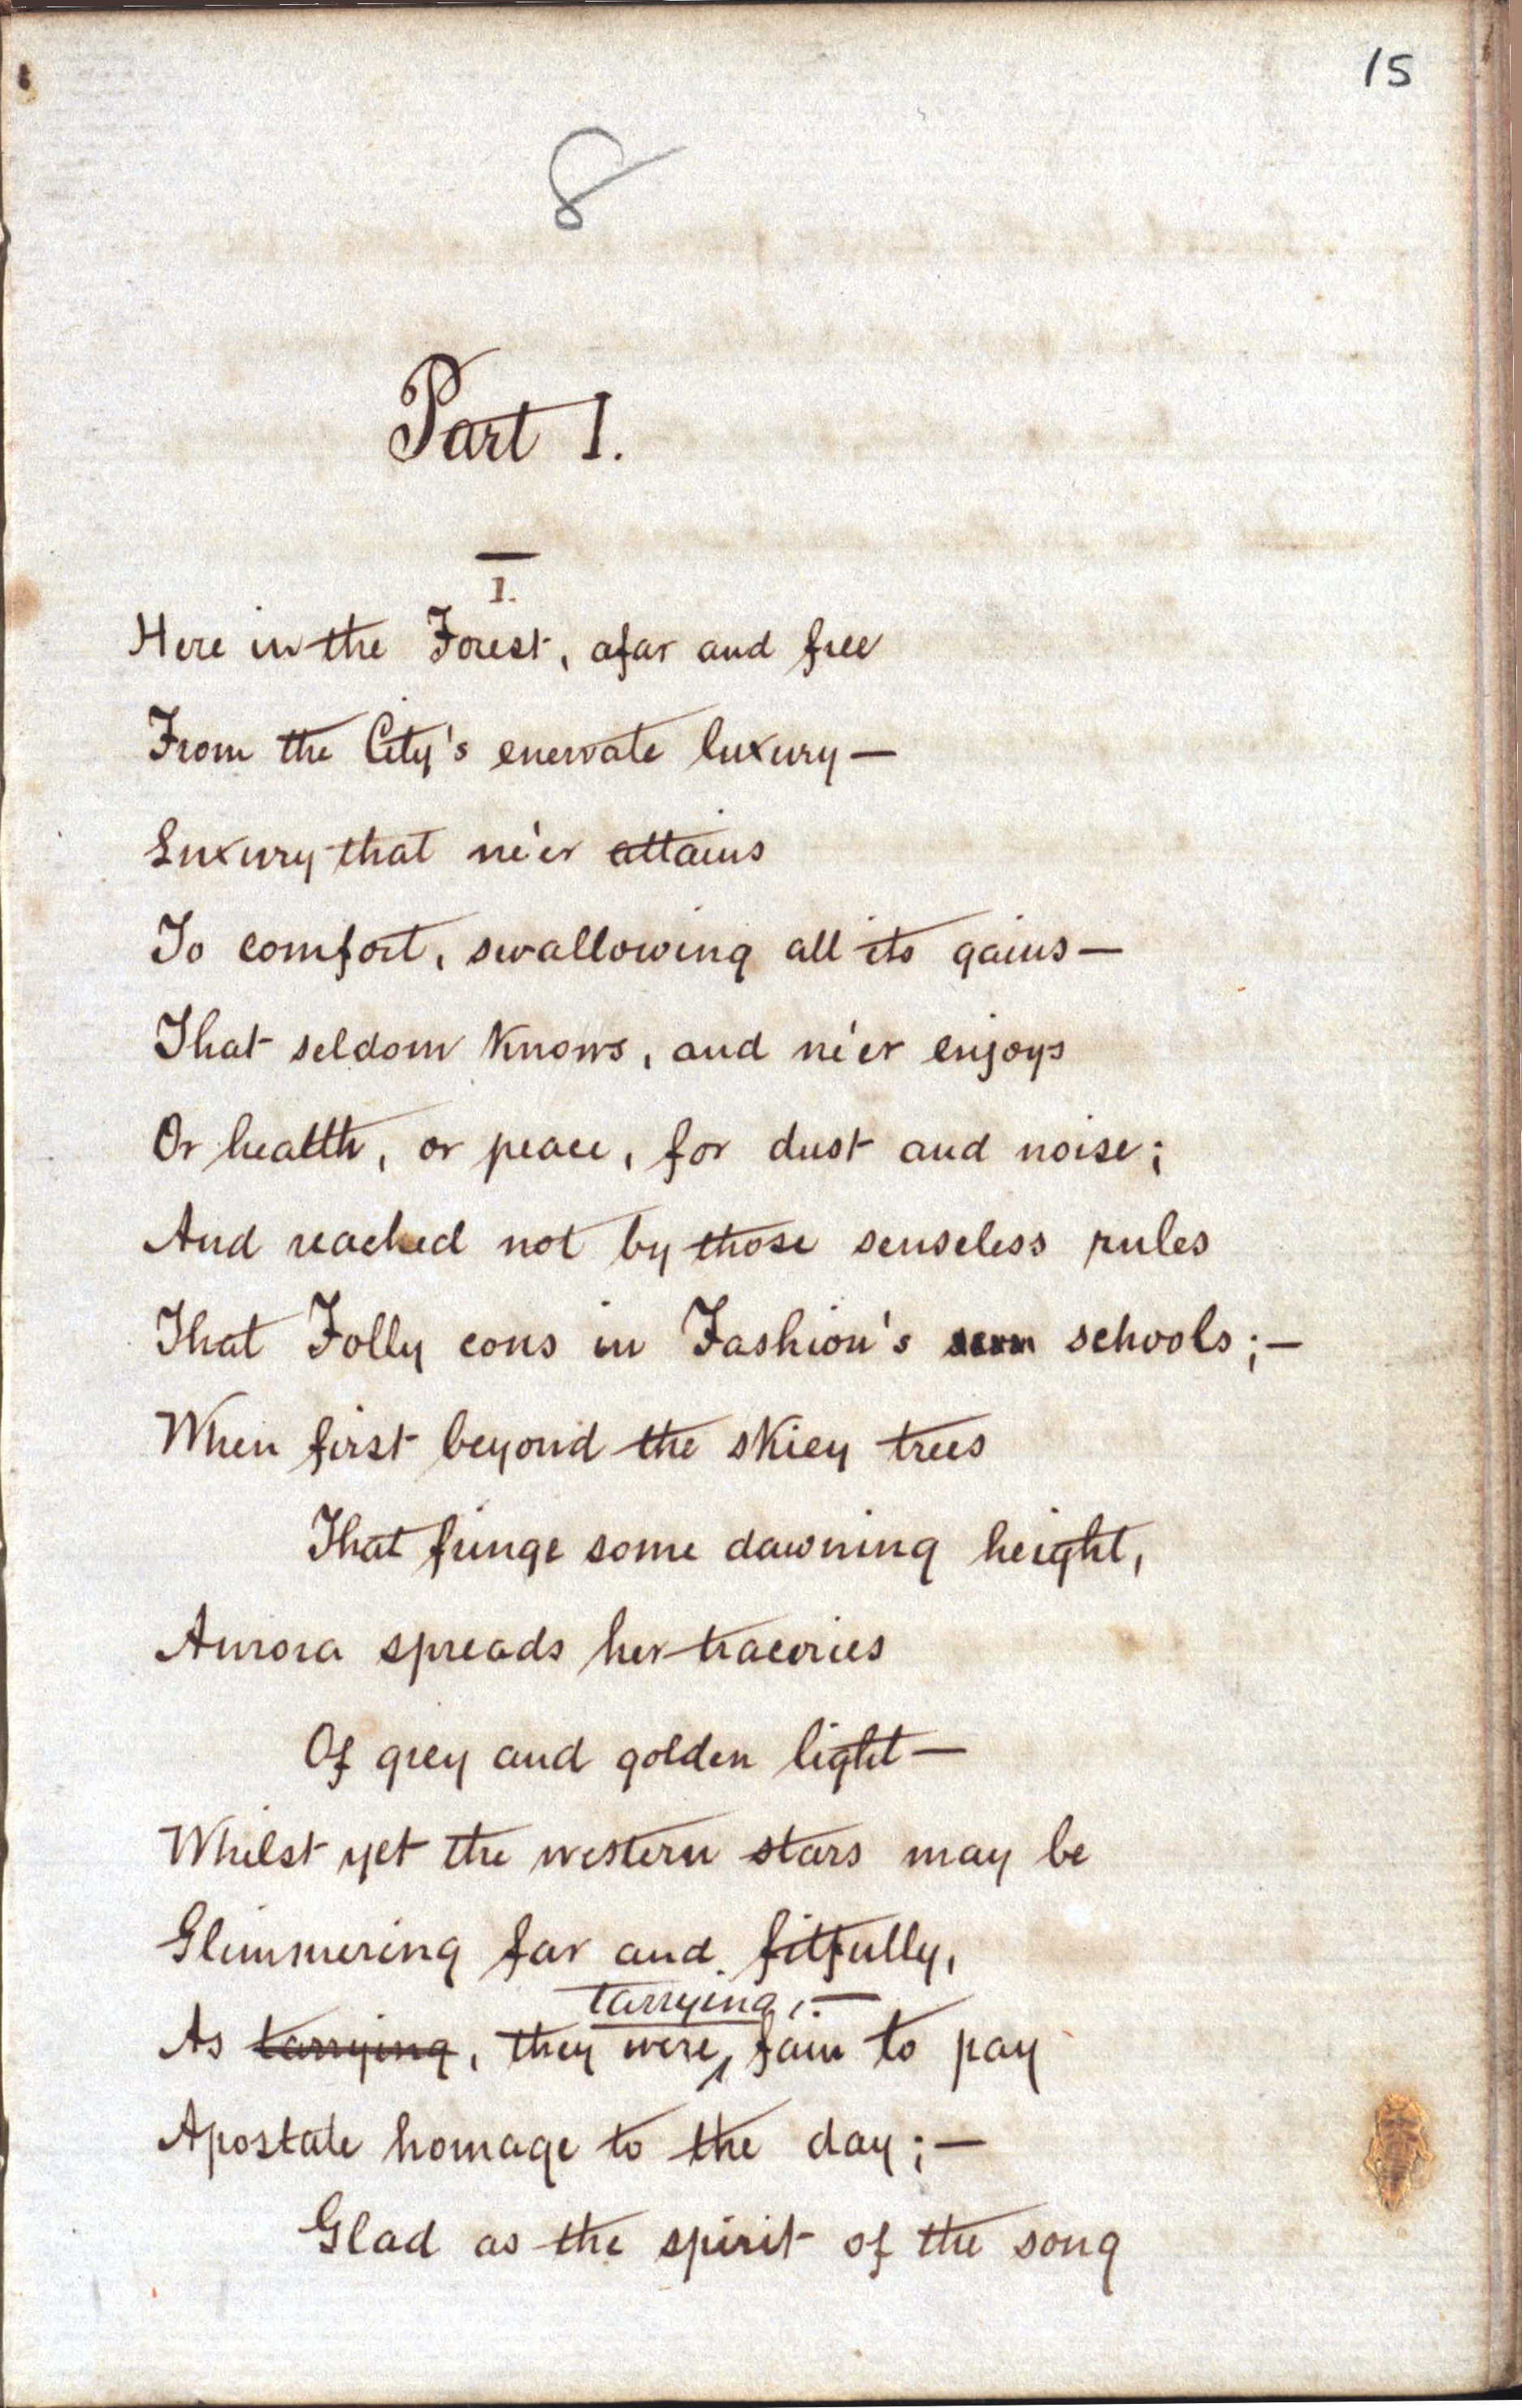 15
8
Part I.
1.
Here in the Forest, afar and free
From the City's enervate luxury—
Luxury that ne'er attains
To comfort, swallowing all its gains—
That seldom knows, and ne'er enjoys
Or health, or peace, for dust and noise;
And reached not by those senseless rules
That Folly cons in Fashion's schools;—
When first beyond the skiey trees
That fringe some dawning height,
Aurora spreads her traceries
Of grey and golden light—
Whilst yet the western stars may be
Glimmering far and fitfully,
tarrying,—
As tarrying, they were, fain to pay
Apostate homage to the day;—
Glad as the spirit of the song